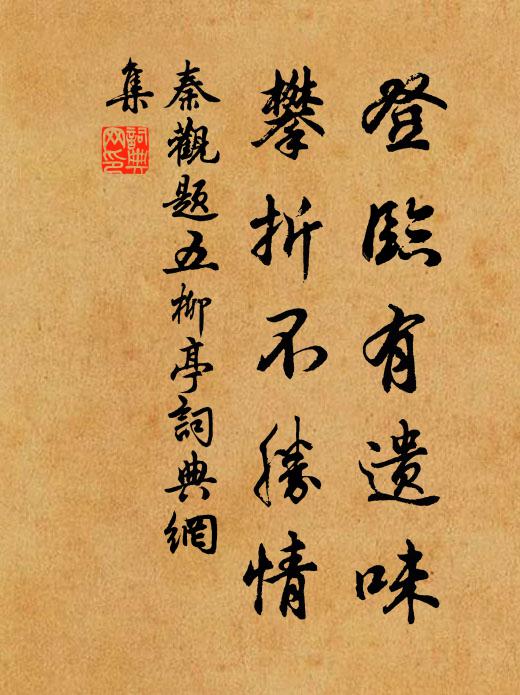 登臨有遺味
攀折不勝情
秦觀題五柳亭詞典網
集
詞典
网印